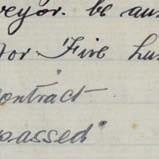 veyor. be au
for Five hu
ontract
passed"